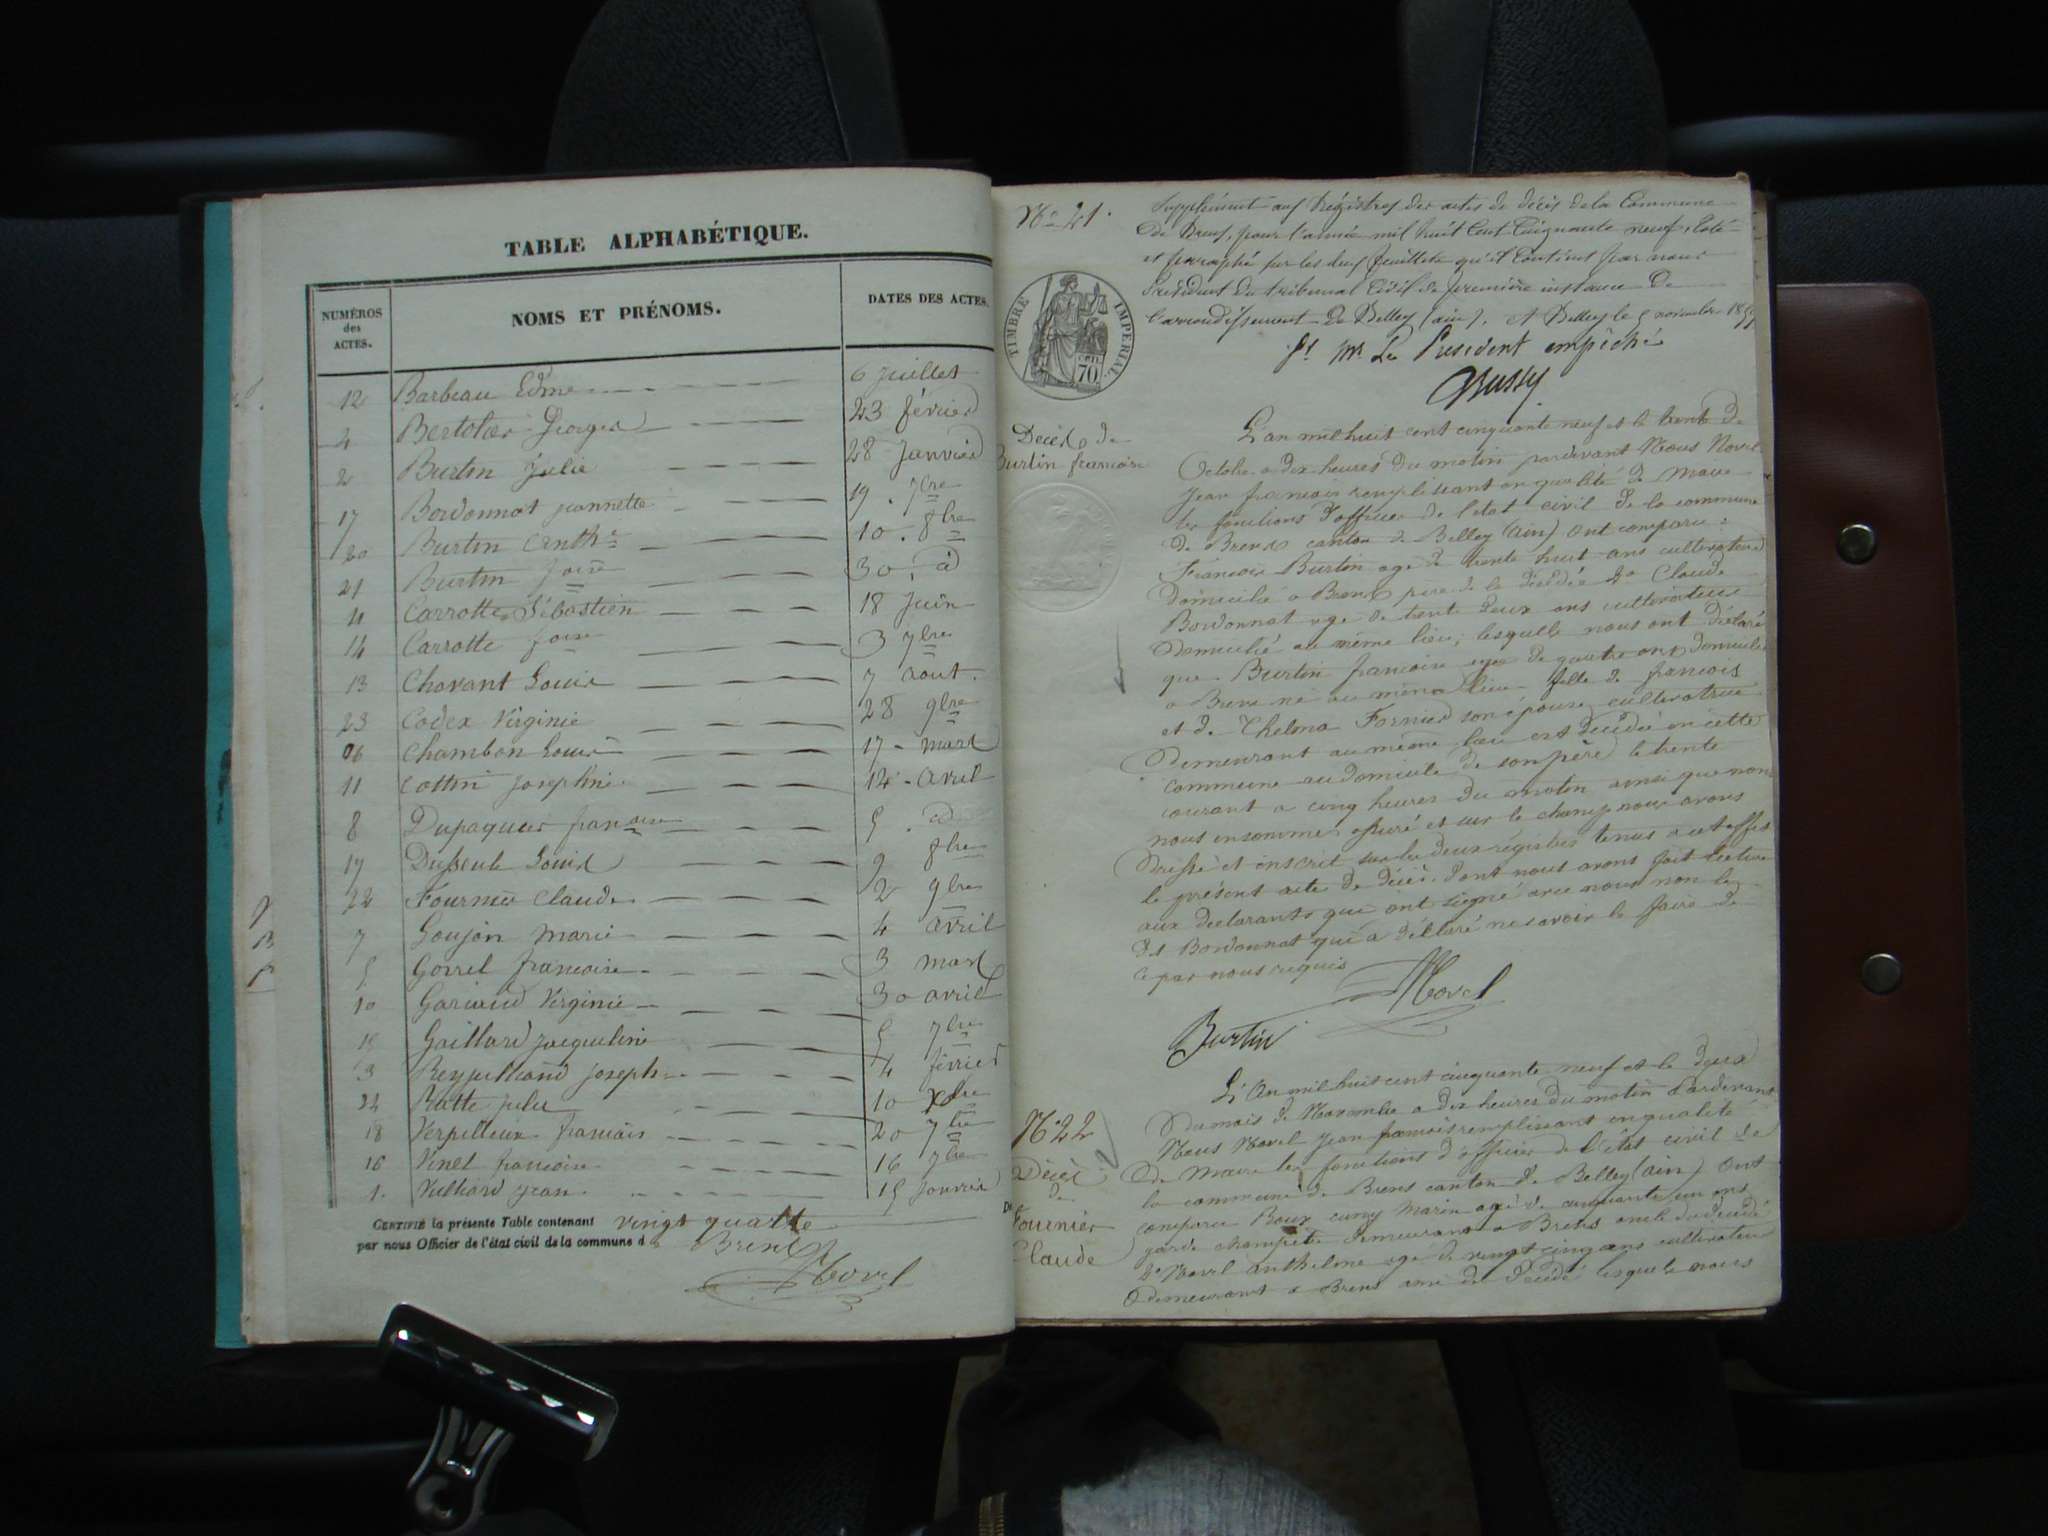 TABLE ALPHABÉTIQUE.
NUMÉROS des ACTES. NOMS ET PRÉNOMS. DATES DES ACTES.
12 Barbeau Edme 6 juillet
4 Bertolier Georges 23 février
2 Burtin Julie 28 janvier
17 Bordonnat jeannette 19 . 7bre
20 Burtin Anthe 10 . 8bre
21 Burtin foise 30 . d
11 Carrotte Sébastien 18 juin
14 Carrotte foise 3 7bre
13 Chavant Louise 7 aout.
23 Codex Virginie 28 9bre
06 Chambon Louis 17 - mars
11 Cottin josephine 14 - avril
8 Dupaquier francoise 5 . d
19 Dusseule Louis 9 8bre
22 Fournier Claude 2 9bre
7 Goujon Marie 4 avril
5 Gorrel francoise 3 mars
10 Gariaud Virginie 30 avril
15 Gaillard jacqueline 5 7bre
3 Reyjulliand joseph 4 février
24 Ratte julie 10 Xbre
18 Verpilleux francois 20 7bre
16 Vinet francoise 16 7bre
1. Vulliard jean 15 janvier
CERTIFIÉ la présente Table contenant vingt quatre
par nous Officier de l'état civil de la commune d Brens
Novel
N° 21.
Supplément aux Régistres des actes de décès de la Commune
de Brens, pour l'année mil huit Cent Cinquante neuf, Coté
et paraphé sur les deux feuillets qu'il Contient par nous
Président du tribunal Civil de première instance De
l'arrondissement De Belley (ain). A Belley le 5 novembre 1859
Pr Mr Le President empêché
TIMBRE IMPERIAL
70
Décès de
Burtin francoise
L'an mil huit cent cinquante neuf et le trente de
Octobre a dix heures du matin pardevant Nous Novel
jean francois remplissant en qualité de Maire
les fonctions d'officier de l'etat civil de la commune
de Brens canton de Belley (ain) Ont comparu :
Francois Burtin age de trente huit ans cultivateur
Domicilié a Brens père de la décédée 2° Claude
Bordonnat age de trente deux ans cultivateur
Domicilié au même lieu, lesquels nous ont Déclaré
que Burtin francoise agee de quatre ans Domiciliée
a Brens né au même lieu fille de francois
et de Thelma Fornier son épouse, cultivatrice
Demeurant au même lieu est Décédée en cette
commune au domicile de son père le trente
courant a cinq heures du matin ainsi que nous
nous en sommes assuré et sur le champ nous avons
Dressé et inscrit sur les deux régistres tenus a cet effet
le présent acte de décès. Dont nous avons fait lecture
aux declarants qui ont signé avec nous non le
dt Bordonnat qui a déclaré ne savoir le faire de
ce par nous requis
Novel
Burtin
N° 22
Décès
de
Fournier
Claude
L'An mil huit cent cinquante neuf et le deux
Du mois de Novembre a dix heures du matin Pardevant
Nous Novel jean francois remplissant en qualité
de Maire les fonctions d'officier de l'état civil de
la commune de Brens canton de Belley (ain) Ont
comparu Roux Marin agé de cinquante un ans
garde champêtre demeurant a Brens oncle du décédé
2° Novel anthelme age de vingt cinq ans cultivateur
demeurant a Brens ami du décédé lesquels nous